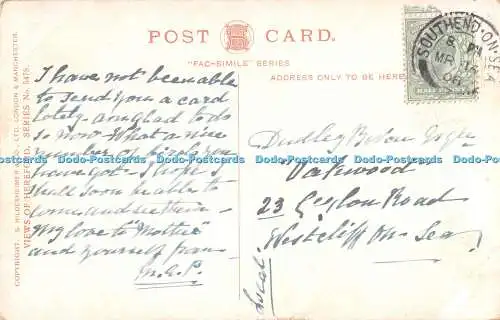 POST CARD.
"FAC-SIMILE" SERIES
ADDRESS ONLY TO BE HERE.
COPYRIGHT. S. HILDESHEIMER & CO. LTD. LONDON & MANCHESTER.
VIEWS OF HEREFORD. SERIES No. 5479.
SOUTHEND-ON-SEA
8 PM
MR 14
06
HALFPENNY
I have not been able
to send you a card
lately - am glad to do
so now - What a nice
number of birds you
have got - I hope I
shall soon be able to
come and see them -
my love to Mother
and yourself from
M.E.P.
Dudley Esqre
Oakwood
23 Ceylon Road
Westcliff On-Sea
Local
Postcards.com Postcards.com Postcards.com Postcards.com